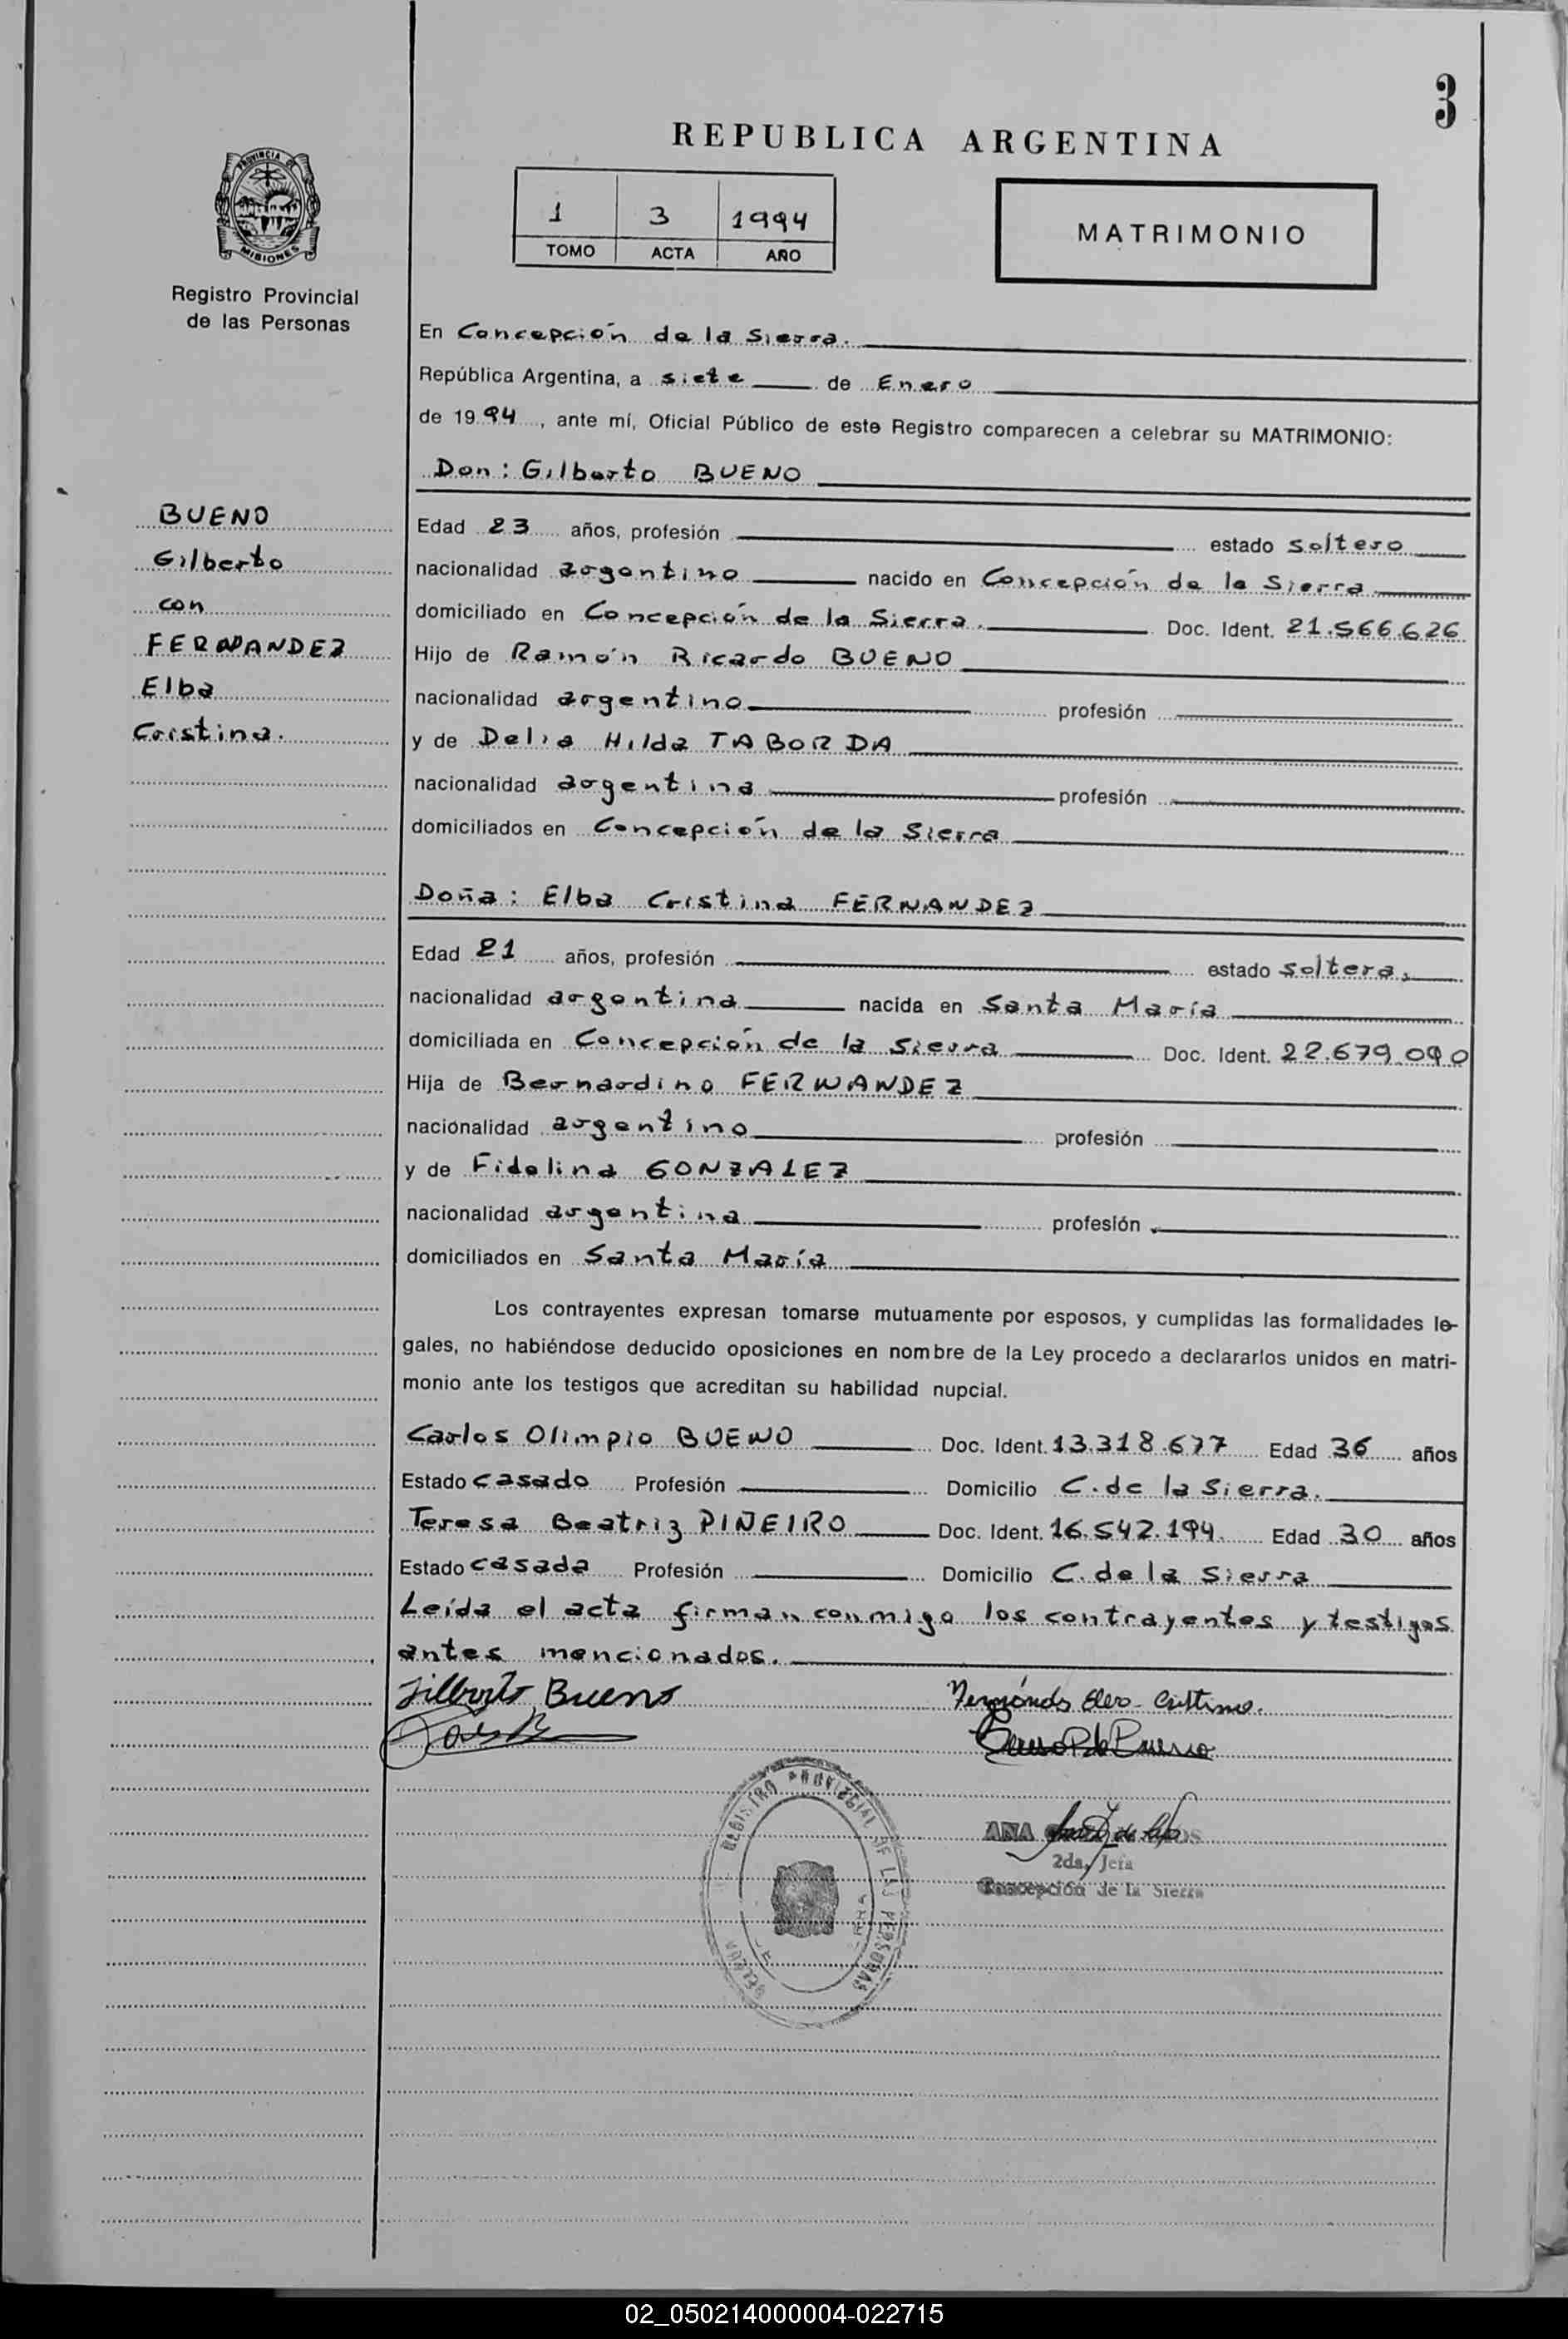 3
REPUBLICA ARGENTINA
PROVINCIA DE
MISIONES
Registro Provincial
de las Personas
1 3 1994
TOMO ACTA AÑO
MATRIMONIO
En Concepción de la Sierra.
República Argentina, a siete de Enero
de 19 94, ante mí, Oficial Público de este Registro comparecen a celebrar su MATRIMONIO:
Don: Gilberto BUENO
BUENO
Gilberto
con
FERNANDEZ
Elba
Cristina.
Edad 23 años, profesión estado soltero
nacionalidad argentino nacido en Concepción de la Sierra
domiciliado en Concepción de la Sierra. Doc. Ident. 21.566.626
Hijo de Ramón Ricardo BUENO
nacionalidad argentino profesión
y de Delia Hilda TABORDA
nacionalidad argentina profesión
domiciliados en Concepción de la Sierra
Doña: Elba Cristina FERNANDEZ
Edad 21 años, profesión estado soltera,
nacionalidad argentina nacida en Santa María
domiciliada en Concepción de la Sierra Doc. Ident. 22.679.090
Hija de Bernardino FERNANDEZ
nacionalidad argentino profesión
y de Fidelina GONZALEZ
nacionalidad argentina profesión
domiciliados en Santa María
Los contrayentes expresan tomarse mutuamente por esposos, y cumplidas las formalidades le-
gales, no habiéndose deducido oposiciones en nombre de la Ley procedo a declararlos unidos en matri-
monio ante los testigos que acreditan su habilidad nupcial.
Carlos Olimpio BUENO Doc. Ident. 13.318.677 Edad 36 años
Estado casado Profesión Domicilio C. de la Sierra.
Teresa Beatriz PIÑEIRO Doc. Ident. 16.542.194. Edad 30 años
Estado casada Profesión Domicilio C. de la Sierra
Leída el acta firman conmigo los contrayentes y testigos
antes mencionados.
Gilberto Bueno
Cristina.
de Bueno
REGISTRO PROVINCIAL DE LAS PERSONAS
ANA
2da. Jefa
Concepción de la Sierra
02_050214000004-022715